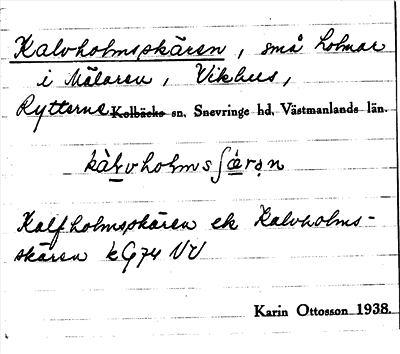 Kalvholmsskären, små holmar
i Mälaren, Vikhus,
Rytterne Kolbäcks sn, Snevringe hd, Västmanlands län.
kàlvholmsʃæ̀rən
Kalfholmsskären ek Kalvholms-
skären kG74 NV
Karin Ottosson 1938.